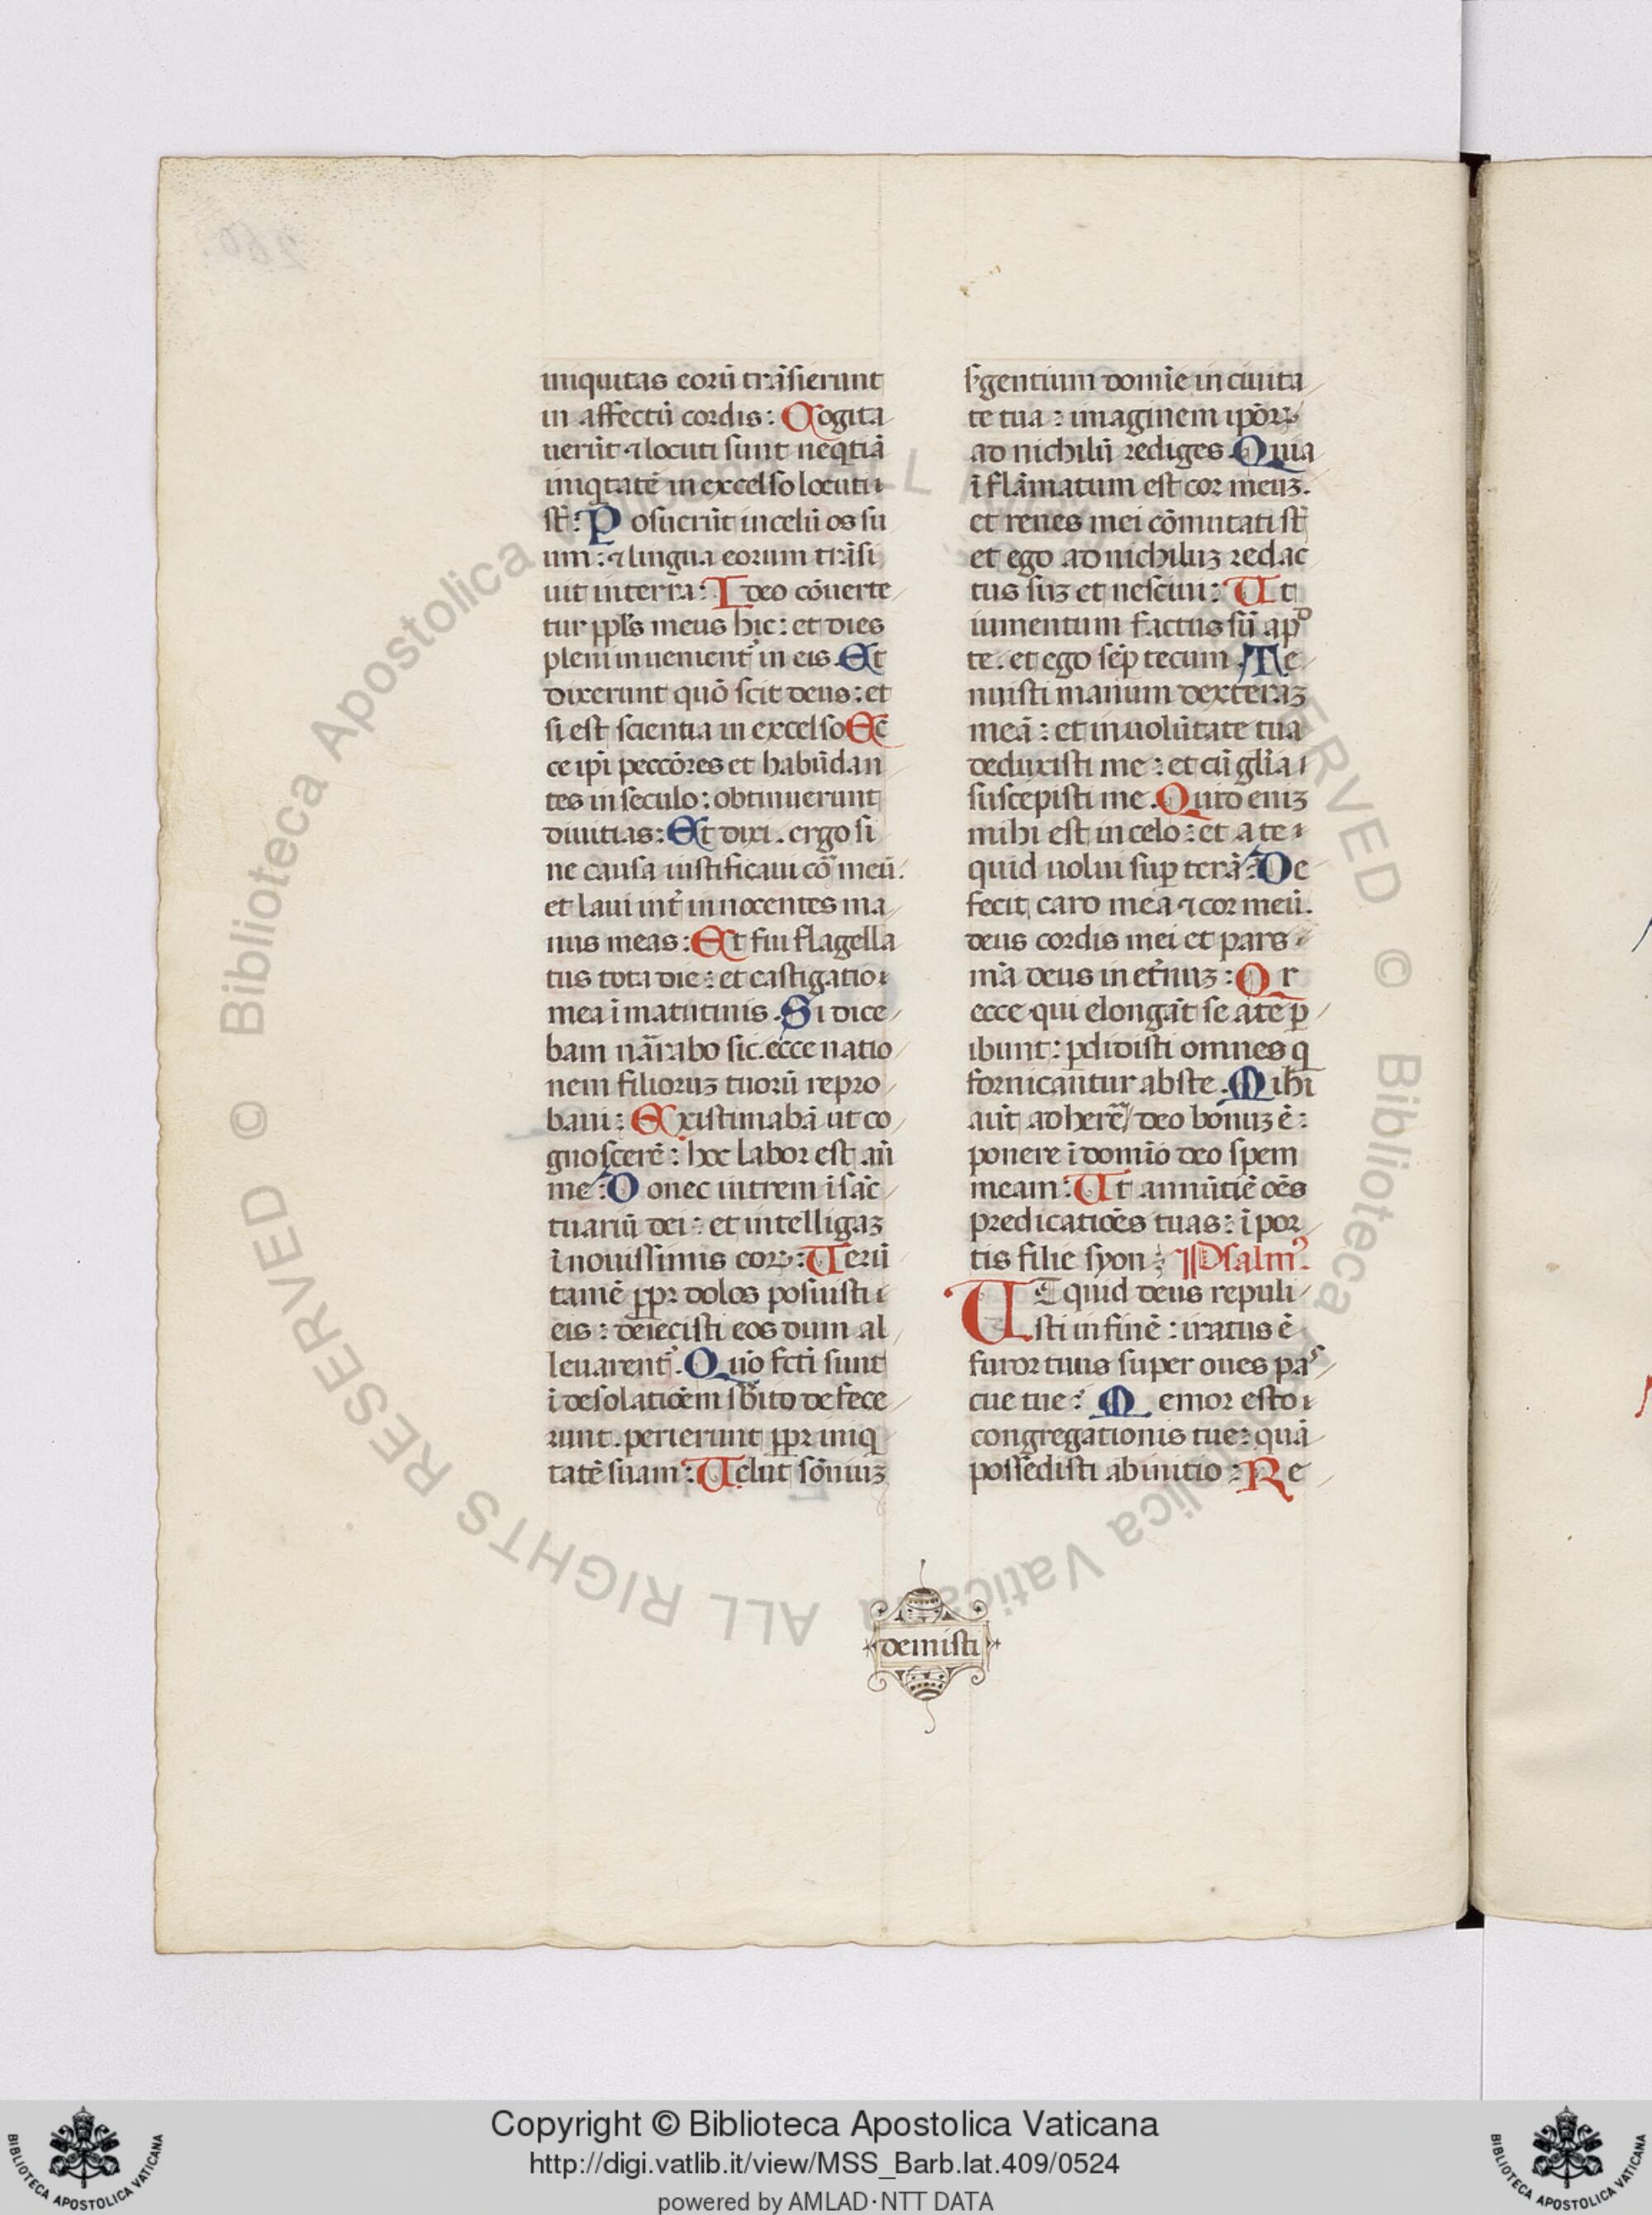 iniquitas eorū trāsierunt
in affectū cordis: Cogita
uerūt ⁊ locuti sunt neqtiā
iniqtatē in excelso locuti
st̄: Posuerūt in celū os su
um: ⁊ lingua eorum trāsi
uit in terra: Ideo cōuerte
tur ppl̄s meus hic: et dies
pleni inuenient᷑ in eis. Et
dixerunt quō scit deus: et
si est scientia in excelso Ec
ce ip̄i peccōres et habūdan
tes in seculo: obtinuerunt
diuitias: Et dixi. ergo si
ne causa iustificaui cō meū.
et laui int̄ innocentes ma
nus meas: Et fui flagella
tus tota die: et castigatio
mea ī matutinis. Si dice
bam nārabo sic. ecce natio
nem filioruꝫ tuorū repro
baui: Existimabā ut co
gnoscerē: hoc labor est an̄
me: Donec intrem ī sāc
tuariū dei: et intelligaꝫ
ī nouissimis eoꝝ: Uerū
tamē ꝓpr dolos posuisti
eis: deiecisti eos dum al
leuarent᷑. Quō fc̄ti sunt
ī desolatiōem sb̄ito defece
runt. perierunt ꝓpr iniq
tatē suam: Uelut sōniuꝫ
s᷑gentium domīe in ciuita
te tua: imaginem ip̄oꝝ
ad nichilū rediges Quia
īflāmatum est cor meuꝫ.
et renes mei cōmutati st̄
et ego ad nichiluꝫ redac
tus suꝫ et nesciui: Ut
iumentum factus sū apᵈ
te. et ego sēp tecum. Te
nuisti manum dexteraꝫ
meā: et in uolūtate tua
deduxisti me: et cū gl̄ia
suscepisti me. Quid eniꝫ
mihi est in celo: et a te
quid uolui suꝑ terā: De
fecit caro mea ⁊ cor meū.
deus cordis mei et pars
m̄a deus in et̄nuꝫ: Qr
ecce qui elongāt se a te ꝑ
ibunt: ꝑdidisti omnes q
fornicantur abs te. Mihi
aūt adherē deo bonuꝫ ē:
ponere ī domīo deo spem
meam: Ut annūtiē oēs
predicatiōes tuas: ī por
tis filie syon: Psalm᷒.
UT quid deus repuli
sti in finē: iratus ē
furor tuus super oues paˢ
cue tue: Memor esto
congregationis tue: quā
possedisti ab initio: Re
demisti
Copyright © Biblioteca Apostolica Vaticana
http://digi.vatlib.it/view/MSS_Barb.lat.409/0524
powered by AMLAD·NTT DATA